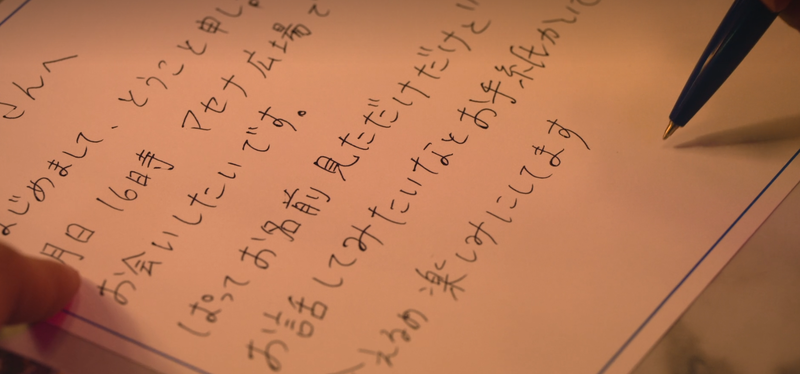 さんへ
はじめまして、とうこと申し
月日 16時 マセナ広場で
お会いしたいです。
ぱって お名前見ただけだけど
お話してみたいなとお手紙かいて
えるの楽しみにしてます